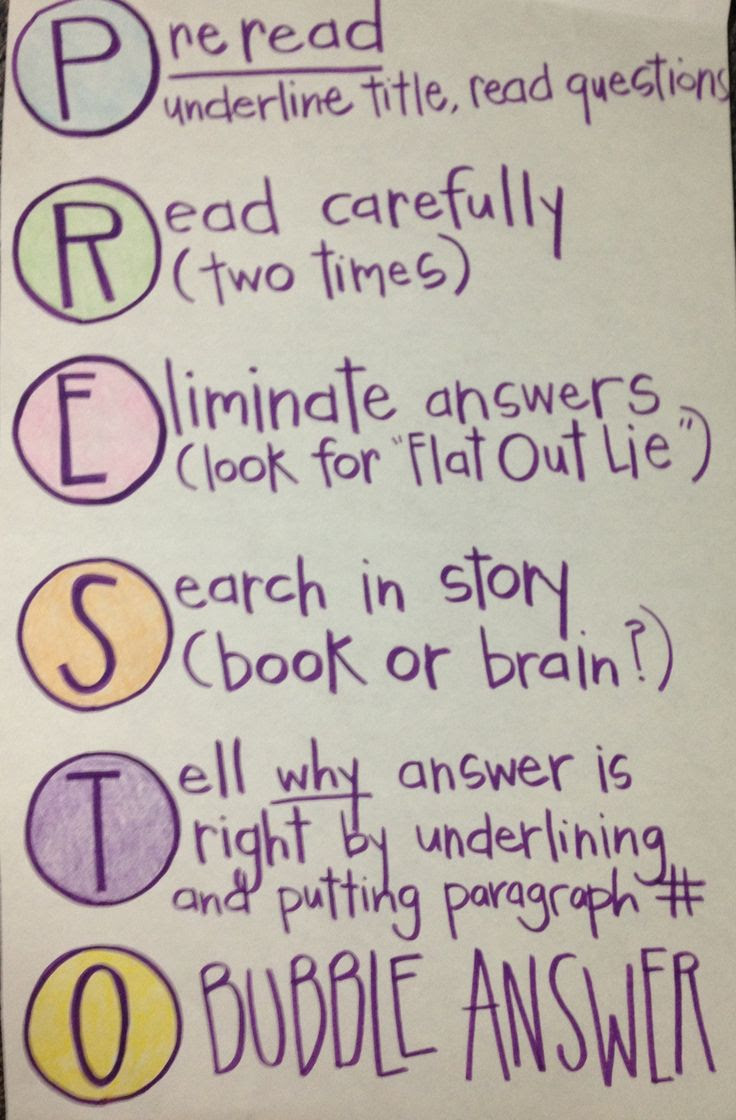 Preread
underline title, read questions
Read carefully
(two times)
Eliminate answers
(look for "Flat Out Lie")
Search in story
(book or brain?)
Tell why answer is
right by underlining
and putting paragraph #
O BUBBLE ANSWER